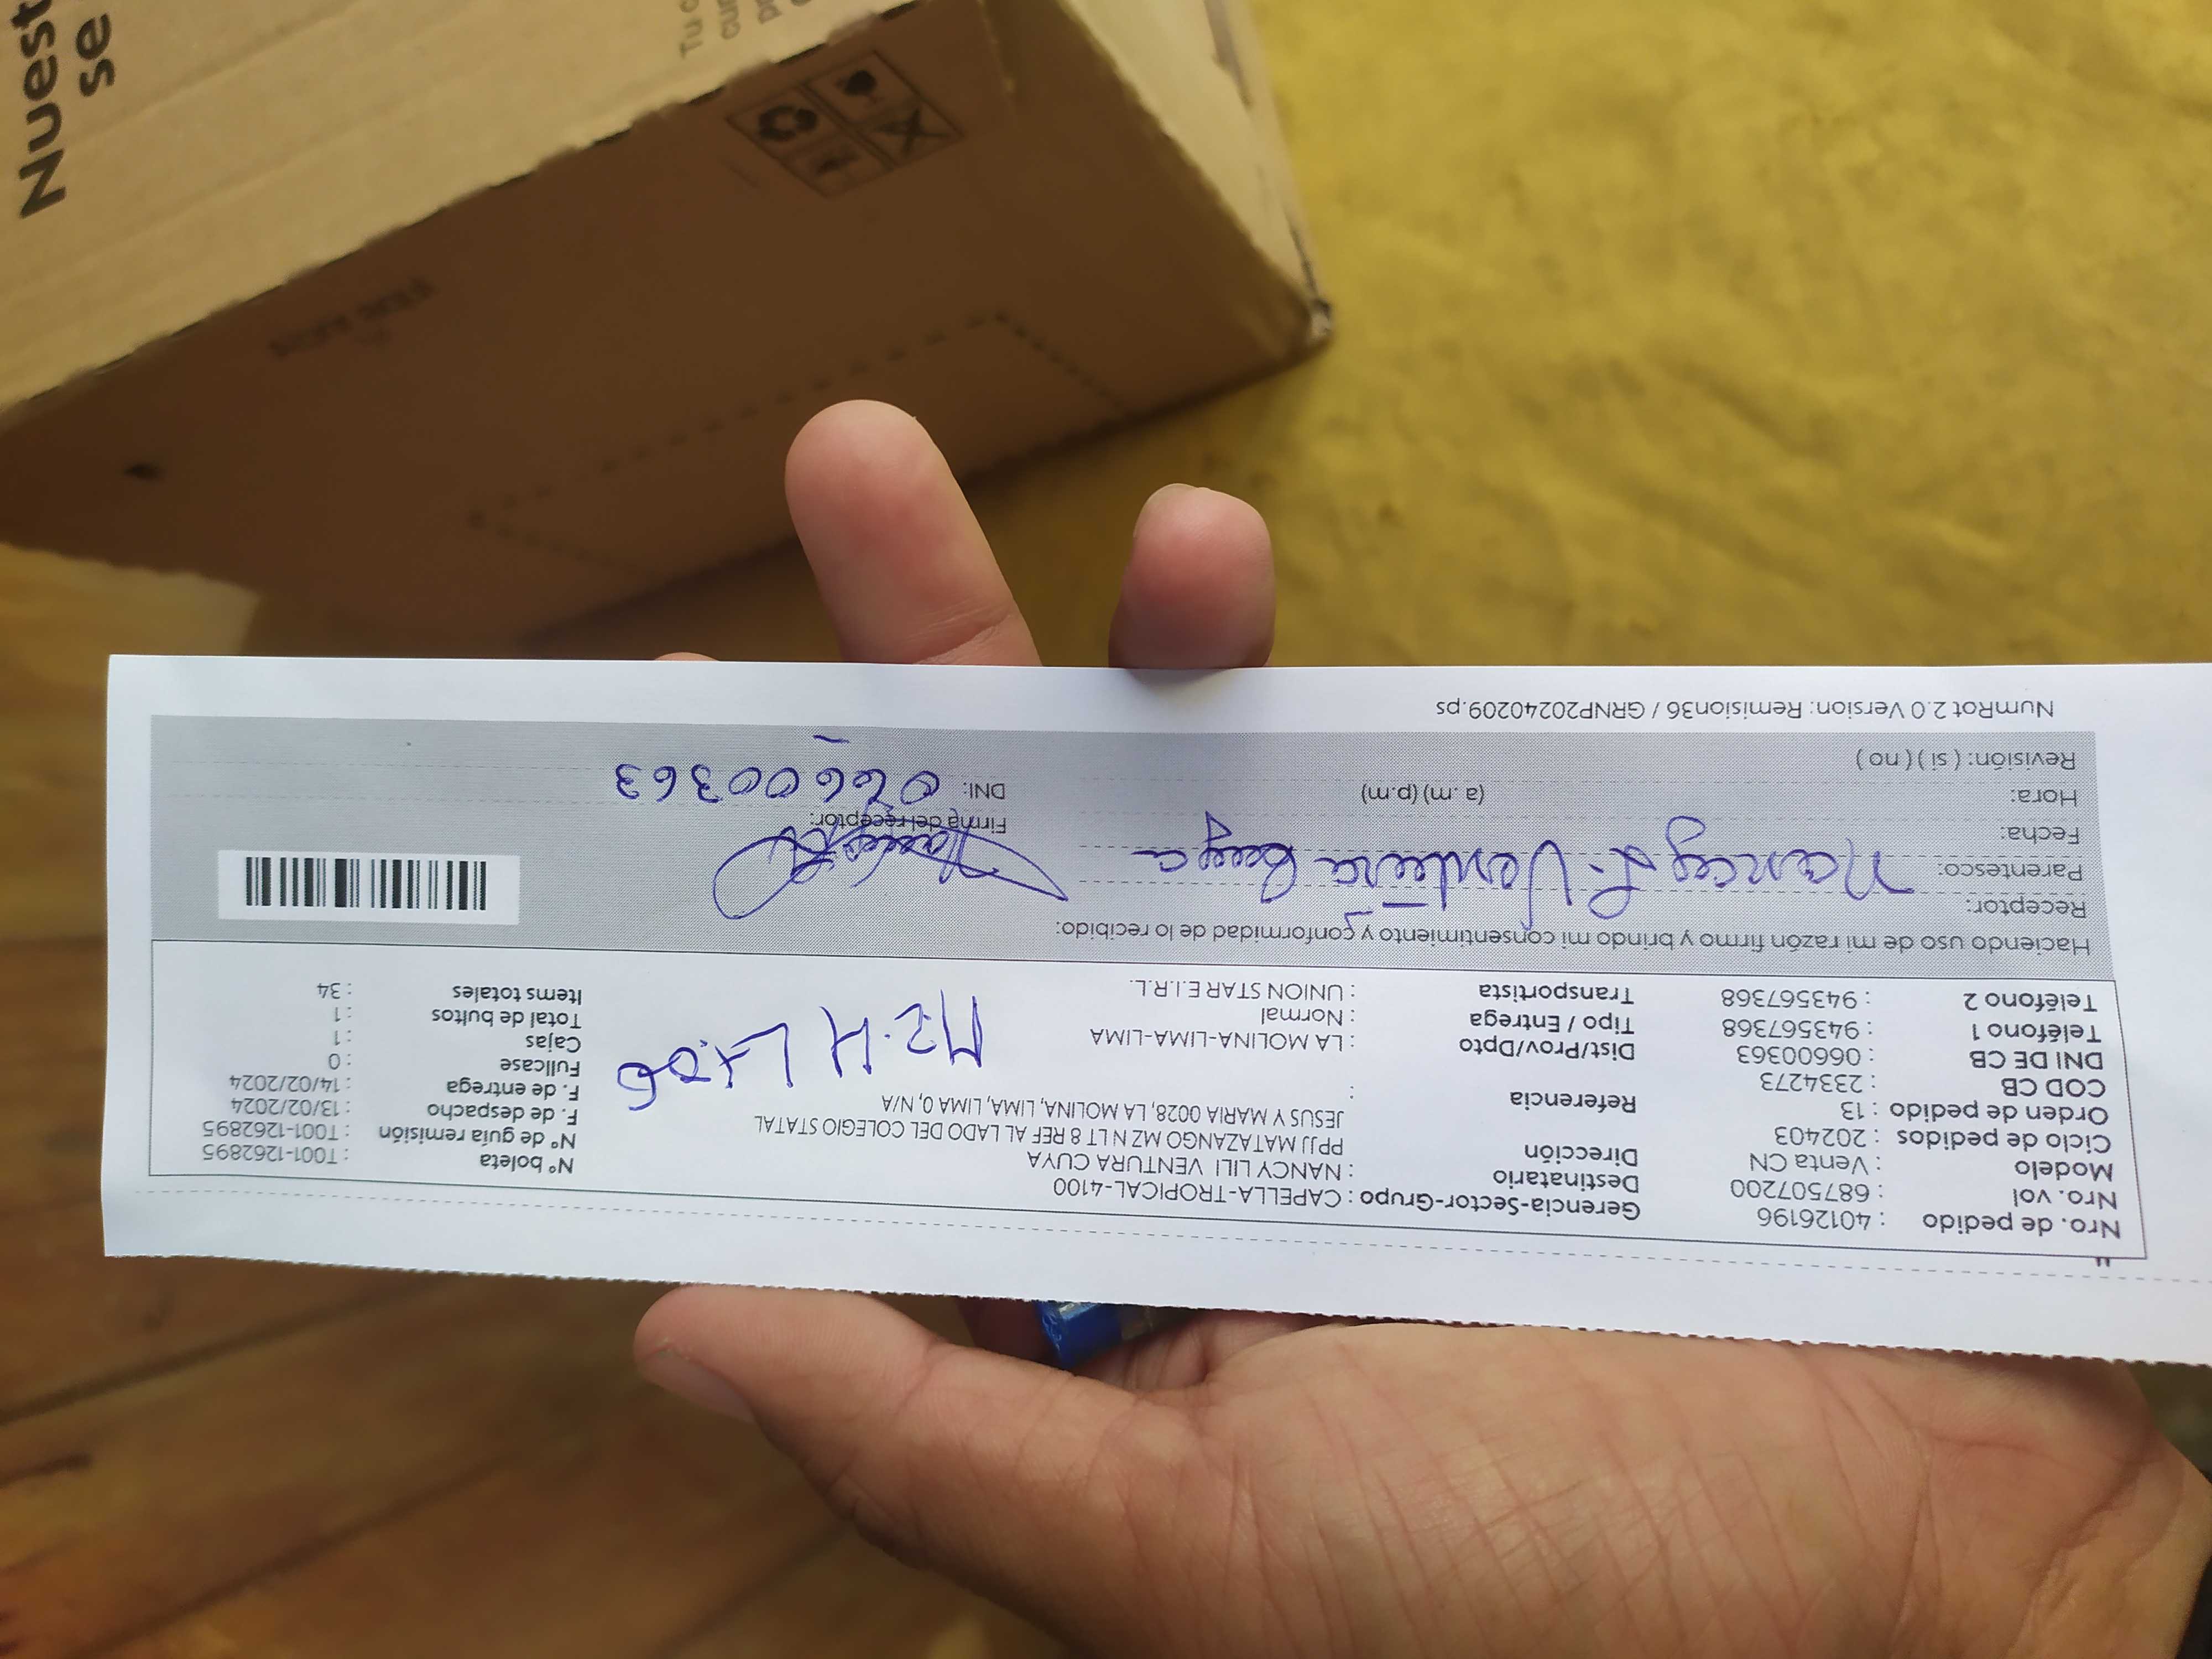 Nuest
se
Tu c
cur
Nro. de pedido : 40126196
Nro. vol : 687507200
Modelo : Venta CN
Ciclo de pedidos : 202403
Orden de pedido : 13
COD CB : 2334273
DNI DE CB : 06600363
Teléfono1 : 943567368
Teléfono 2 : 943567368
Gerencia-Sector-Grupo : CAPELLA-TROPICAL-4100
Destinatario : NANCY LILI VENTURA CUYA
Dirección : PPJJ MATAZANGO MZ N LT 8 REF AL LADO DEL COLEGIO STATAL
JESUS Y MARIA 0028, LA MOLINA, LIMA, LIMA 0, N/A
Referencia :
Dist/Prov/Dpto : LA MOLINA-LIMA-LIMA
Tipo / Entrega : Normal
Transportista : UNION STAR E.I.R.L.
MZ. H Lt. 06
N° boleta : T001-1262895
N° de guía remisión : T001-1262895
F. de despacho : 13/02/2024
F. de entrega : 14/02/2024
Fullcase : 0
Cajas : 1
Total de bultos : 1
Items totales : 34
Haciendo uso de mi razón firmo y brindo mi consentimiento y conformidad de lo recibido:
Receptor:
Parentesco: Nancy L. Ventura Cuya
Fecha:
Hora: (a.m) (p.m)
Revisión: ( si ) ( no )
Firma del receptor:
DNI: 06600363
NumRot 2.0 Version: Remision36 / GRNP20240209.ps